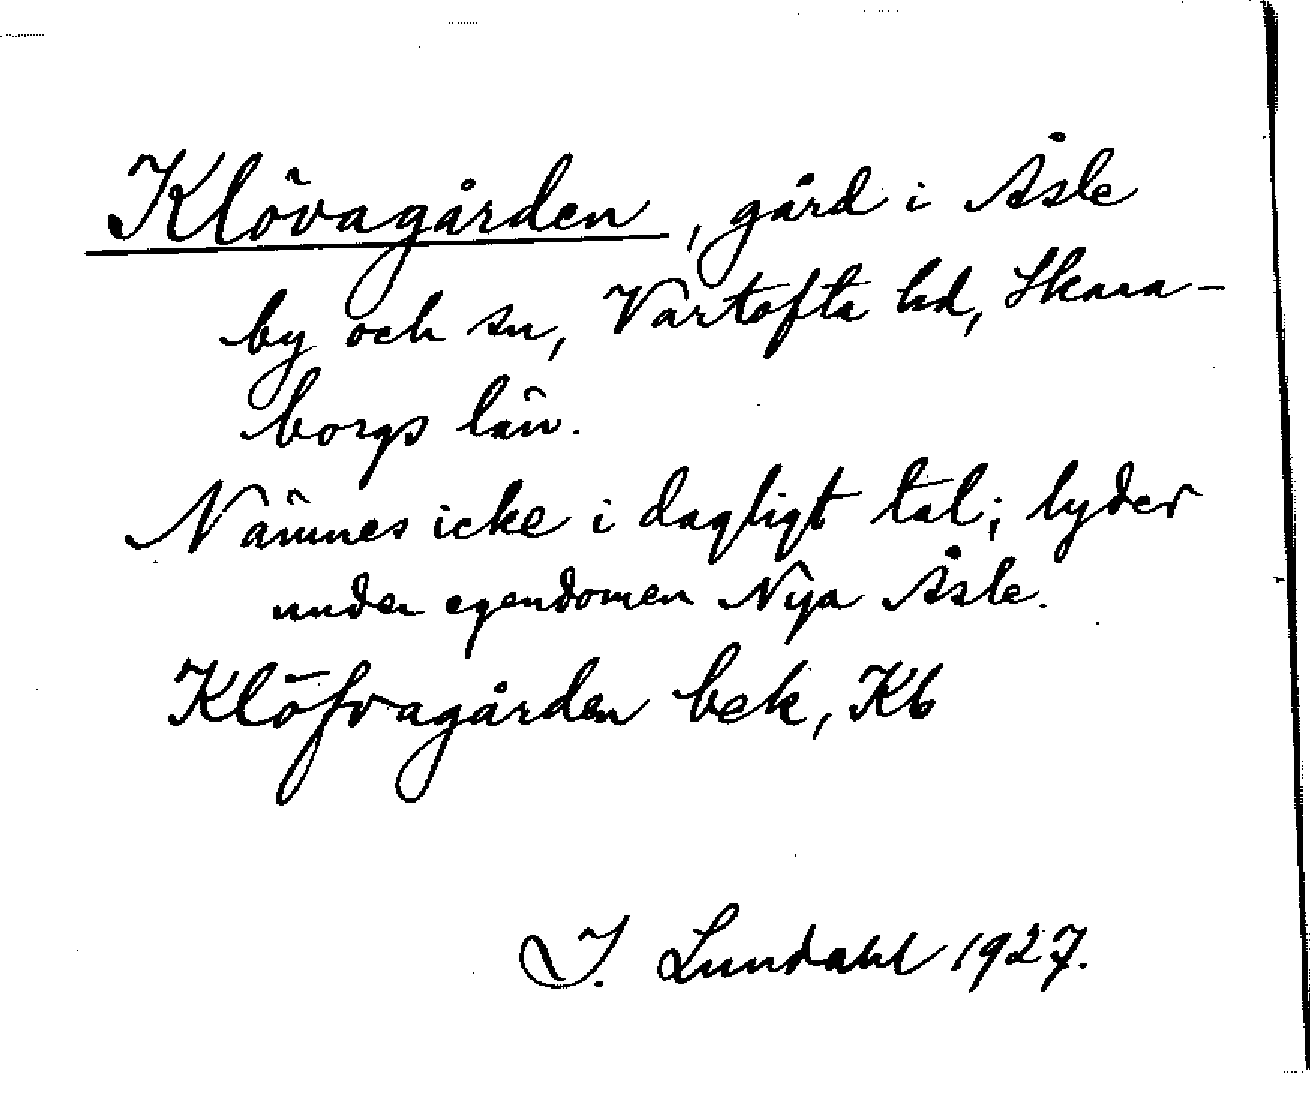 Klövagården, gård i Åsle
by och sn, Vartofta hd, Skara-
borgs län.
Nämnes icke i dagligt tal; lyder
under egendomen Nya Åsle.
Klöfvagården bek, Kb
I. Lundahl 1927.